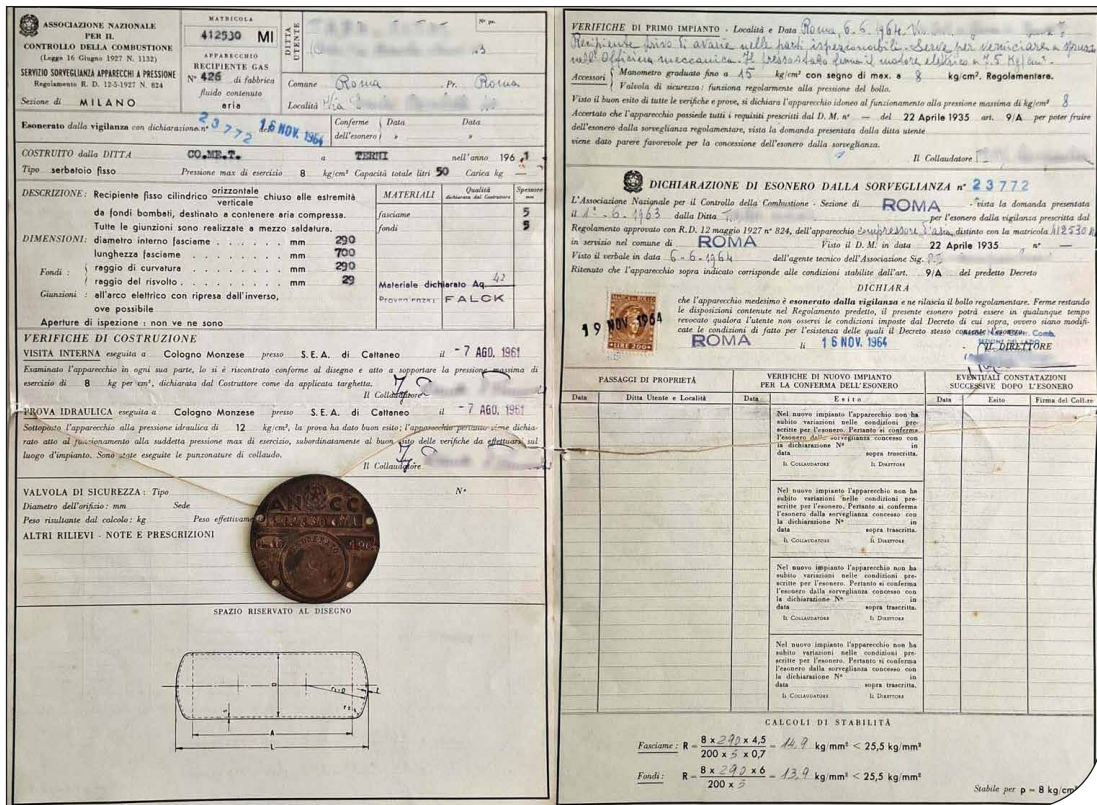 ASSOCIAZIONE NAZIONALE
PER IL
CONTROLLO DELLA COMBUSTIONE
(Legge 16 Giugno 1927 N. 1132)
SERVIZIO SORVEGLIANZA APPARECCHI A PRESSIONE
Regolamento R. D. 12-5-1927 N. 824
Sezione di MILANO
MATRICOLA
412530 MI
APPARECCHIO
RECIPIENTE GAS
N° 426 di fabbrica
fluido contenuto
aria
DITTA UTENTE
N° pr.
Comune Roma Pr. Roma
Località Via
Esonerato dalla vigilanza con dichiarazione n° 23772 del 16 NOV. 1964
Conferme dell'esonero
Data Data
» »
COSTRUITO dalla DITTA CO.ME.T. a TERNI nell'anno 1961
Tipo serbatoio fisso Pressione max di esercizio 8 kg/cm² Capacità totale litri 50 Carica kg —
DESCRIZIONE: Recipiente fisso cilindrico orizzontale verticale chiuso alle estremità
da fondi bombati, destinato a contenere aria compressa.
Tutte le giunzioni sono realizzate a mezzo saldatura.
DIMENSIONI: diametro interno fasciame . . . . mm 290
lunghezza fasciame . . . . . mm 700
Fondi: raggio di curvatura . . . . . mm 290
raggio del risvolto . . . . . mm 29
Giunzioni: all'arco elettrico con ripresa dall'inverso,
ove possibile
Aperture di ispezione: non ve ne sono
MATERIALI Qualità dichiarata dal Costruttore Spessore mm
fasciame 5
fondi 5
Materiale dichiarato Aq. 42
Provenienza: FALCK
VERIFICHE DI COSTRUZIONE
VISITA INTERNA eseguita a Cologno Monzese presso S.E.A. di Cattaneo il -7 AGO. 1961
Esaminato l'apparecchio in ogni sua parte, lo si è riscontrato conforme al disegno e atto a sopportare la pressione massima di
esercizio di 8 kg per cm², dichiarata dal Costruttore come da applicata targhetta.
Il Collaudatore
PROVA IDRAULICA eseguita a Cologno Monzese presso S.E.A. di Cattaneo il -7 AGO. 1961
Sottoposto l'apparecchio alla pressione idraulica di 12 kg/cm², la prova ha dato buon esito; l'apparecchio pertanto viene dichia-
rato atto al funzionamento alla suddetta pressione max di esercizio, subordinatamente al buon esito delle verifiche da effettuarsi sul
luogo d'impianto. Sono state eseguite le punzonature di collaudo.
Il Collaudatore
VALVOLA DI SICUREZZA: Tipo N°
Diametro dell'orifizio: mm Sede
Peso risultante dal calcolo: kg Peso effettivame
ALTRI RILIEVI - NOTE E PRESCRIZIONI
ANCC
SPAZIO RISERVATO AL DISEGNO
A
L
VERIFICHE DI PRIMO IMPIANTO - Località e Data Roma, 6.6.1964
Recipiente privo di avarie nelle parti ispezionabili. Serve per verniciare a spruzzo
nell'Officina meccanica. Il pressostato ferma il motore elettrico a 7.5 Kg/cm².
Accessori Manometro graduato fino a 15 kg/cm² con segno di max. a 8 kg/cm². Regolamentare.
Valvola di sicurezza: funziona regolarmente alla pressione del bollo.
Visto il buon esito di tutte le verifiche e prove, si dichiara l'apparecchio idoneo al funzionamento alla pressione massima di kg/cm² 8
Accertato che l'apparecchio possiede tutti i requisiti prescritti dal D. M. n° — del 22 Aprile 1935 art. 9/A per poter fruire
dell'esonero dalla sorveglianza regolamentare, vista la domanda presentata dalla ditta utente
viene dato parere favorevole per la concessione dell'esonero dalla sorveglianza.
Il Collaudatore
DICHIARAZIONE DI ESONERO DALLA SORVEGLIANZA n° 23772
L'Associazione Nazionale per il Controllo della Combustione - Sezione di ROMA - vista la domanda presentata
il 1°-6-1963 dalla Ditta per l'esonero dalla vigilanza prescritta dal
Regolamento approvato con R.D. 12 maggio 1927 n° 824, dell'apparecchio compressore d'aria distinto con la matricola 412530
in servizio nel comune di ROMA Visto il D. M. in data 22 Aprile 1935 n° —
Visto il verbale in data 6-6-1964 dell'agente tecnico dell'Associazione Sig.
Ritenuto che l'apparecchio sopra indicato corrisponde alle condizioni stabilite dall'art. 9/A del predetto Decreto
DICHIARA
che l'apparecchio medesimo è esonerato dalla vigilanza e ne rilascia il bollo regolamentare. Ferme restando
le disposizioni contenute nel Regolamento predetto, il presente esonero potrà essere in qualunque tempo
revocato qualora l'utente non osservi le condizioni imposte dal Decreto di cui sopra, ovvero siano modifi-
cate le condizioni di fatto per l'esistenza delle quali il Decreto stesso consente l'esonero.
MARCA DA BOLLO
LIRE 200
19 NOV 1964
ROMA li 16 NOV. 1964
IL DIRETTORE
PASSAGGI DI PROPRIETÀ
Data Ditta Utente e Località
VERIFICHE DI NUOVO IMPIANTO
PER LA CONFERMA DELL'ESONERO
Data Esito
EVENTUALI CONSTATAZIONI
SUCCESSIVE DOPO L'ESONERO
Data Esito Firma del Coll.re
Nel nuovo impianto l'apparecchio non ha
subito variazioni nelle condizioni pre-
scritte per l'esonero. Pertanto si conferma
l'esonero dalla sorveglianza concesso con
la dichiarazione N° in
data sopra trascritta.
IL COLLAUDATORE IL DIRETTORE
Nel nuovo impianto l'apparecchio non ha
subito variazioni nelle condizioni pre-
scritte per l'esonero. Pertanto si conferma
l'esonero dalla sorveglianza concesso con
la dichiarazione N° in
data sopra trascritta.
IL COLLAUDATORE IL DIRETTORE
Nel nuovo impianto l'apparecchio non ha
subito variazioni nelle condizioni pre-
scritte per l'esonero. Pertanto si conferma
l'esonero dalla sorveglianza concesso con
la dichiarazione N° in
data sopra trascritta.
IL COLLAUDATORE IL DIRETTORE
Nel nuovo impianto l'apparecchio non ha
subito variazioni nelle condizioni pre-
scritte per l'esonero. Pertanto si conferma
l'esonero dalla sorveglianza concesso con
la dichiarazione N° in
data sopra trascritta.
IL COLLAUDATORE IL DIRETTORE
CALCOLI DI STABILITÀ
Fasciame: R = 8 x 290 x 4,5 / 200 x 5 x 0,7 = 14,9 kg/mm² < 25,5 kg/mm²
Fondi: R = 8 x 290 x 6 / 200 x 5 = 13,9 kg/mm² < 25,5 kg/mm²
Stabile per p = 8 kg/cm²